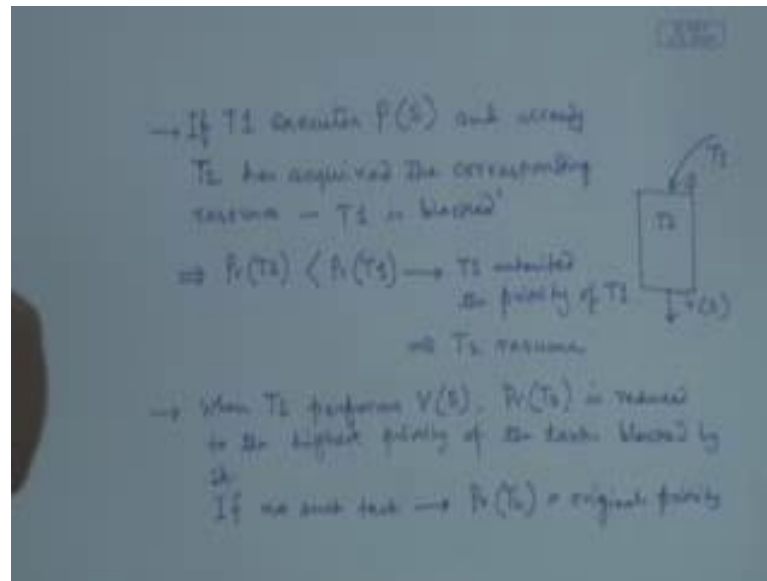 → If T1 executes P(S) and already
T2 has acquired the corresponding
resource – T1 is blocked
⇒ Pr(T2) < Pr(T1) → T2 inherited
the priority of T1
⇒ T2 resume
→ When T2 performs V(S), Pr(T2) is reduced
to the highest priority of the tasks blocked by
it.
If no such task → Pr(T2) = original priority
T1
T2
V(S)